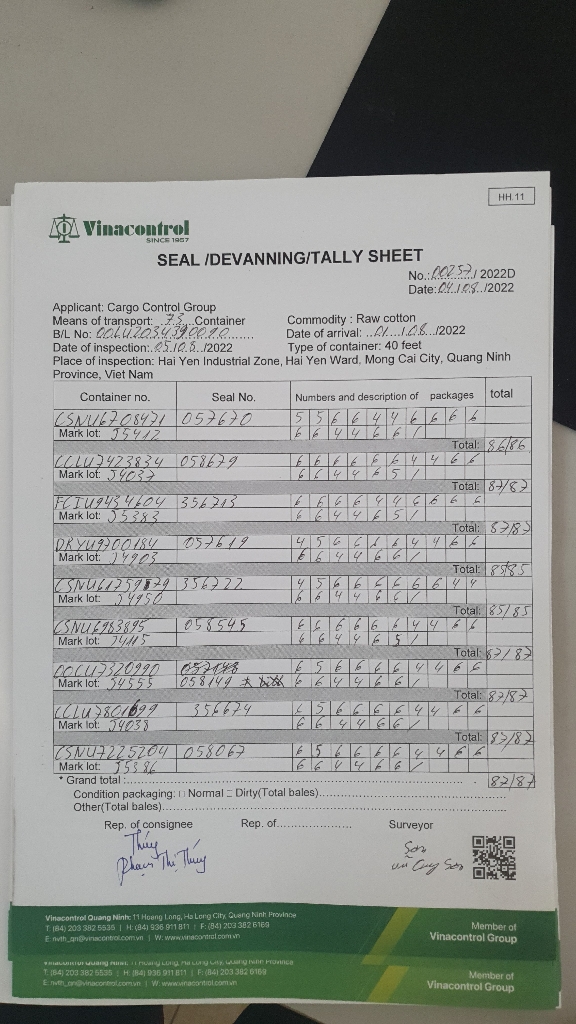 HH.11
Vinacontrol
SINCE 1957
SEAL /DEVANNING/TALLY SHEET
No.: 00257 / 2022D
Date: 04 / 08 /2022
Applicant: Cargo Control Group
Means of transport: 73 Container Commodity : Raw cotton
B/L No: Date of arrival: 01 / 08 /2022
Date of inspection: 05 / 08 /2022 Type of container: 40 feet
Place of inspection: Hai Yen Industrial Zone, Hai Yen Ward, Mong Cai City, Quang Ninh
Province, Viet Nam
Container no. Seal No. Numbers and description of packages total
CSNU6708471 057670 5 5 6 6 4 4 6 6 6 6
Mark lot: J5412 6 6 4 4 6 6 /
Total: 86/86
CCLU7423834 058679 6 6 6 6 6 6 4 4 6 6
Mark lot: J4037 6 6 4 4 6 5 /
Total: 87/87
FCIU9434604 356713 6 6 6 6 4 4 6 6 6 6
Mark lot: J5383 6 6 4 4 6 5 /
Total: 87/87
DRYU9700184 057619 4 5 6 6 6 6 4 4 6 6
Mark lot: J4903 6 6 4 4 6 6 /
Total: 85/85
356722 4 5 6 6 6 6 6 6 4 4
Mark lot: J4950 6 6 4 4 6 6 /
Total: 85/85
CSNU6983895 058545 6 6 6 6 6 6 4 4 6 6
Mark lot: J4115 6 6 4 4 6 5 /
Total: 87/87
OOCU7320990 6 5 6 6 6 6 4 4 6 6
Mark lot: J4555 058149 6 6 4 4 6 6 /
Total: 87/87
CCLU7801699 356674 6 5 6 6 6 6 4 4 6 6
Mark lot: J4038 6 6 4 4 6 6 /
Total: 87/87
CSNU7225204 058067 6 5 6 6 6 6 4 4 6 6
Mark lot: J5386 6 6 4 4 6 6 /
* Grand total : 87/87
Condition packaging: □ Normal □ Dirty(Total bales)
Other(Total bales)
Rep. of consignee Rep. of Surveyor
Thúy Sơn
Phạm Thị Thúy Sơn
Vinacontrol Quang Ninh: 11 Hoang Long, Ha Long City, Quang Ninh Province
T: (84) 203 382 5535 | H: (84) 936 911 811 | F: (84) 203 382 6169
E: nvth_qn@vinacontrol.com.vn | W: www.vinacontrol.com.vn
Member of
Vinacontrol Group
Vinacontrol Quang Ninh: 11 Hoang Long, Ha Long City, Quang Ninh Province
T: (84) 203 382 5535 | H: (84) 936 911 811 | F: (84) 203 382 6169
E: nvth_qn@vinacontrol.com.vn | W: www.vinacontrol.com.vn
Member of
Vinacontrol Group